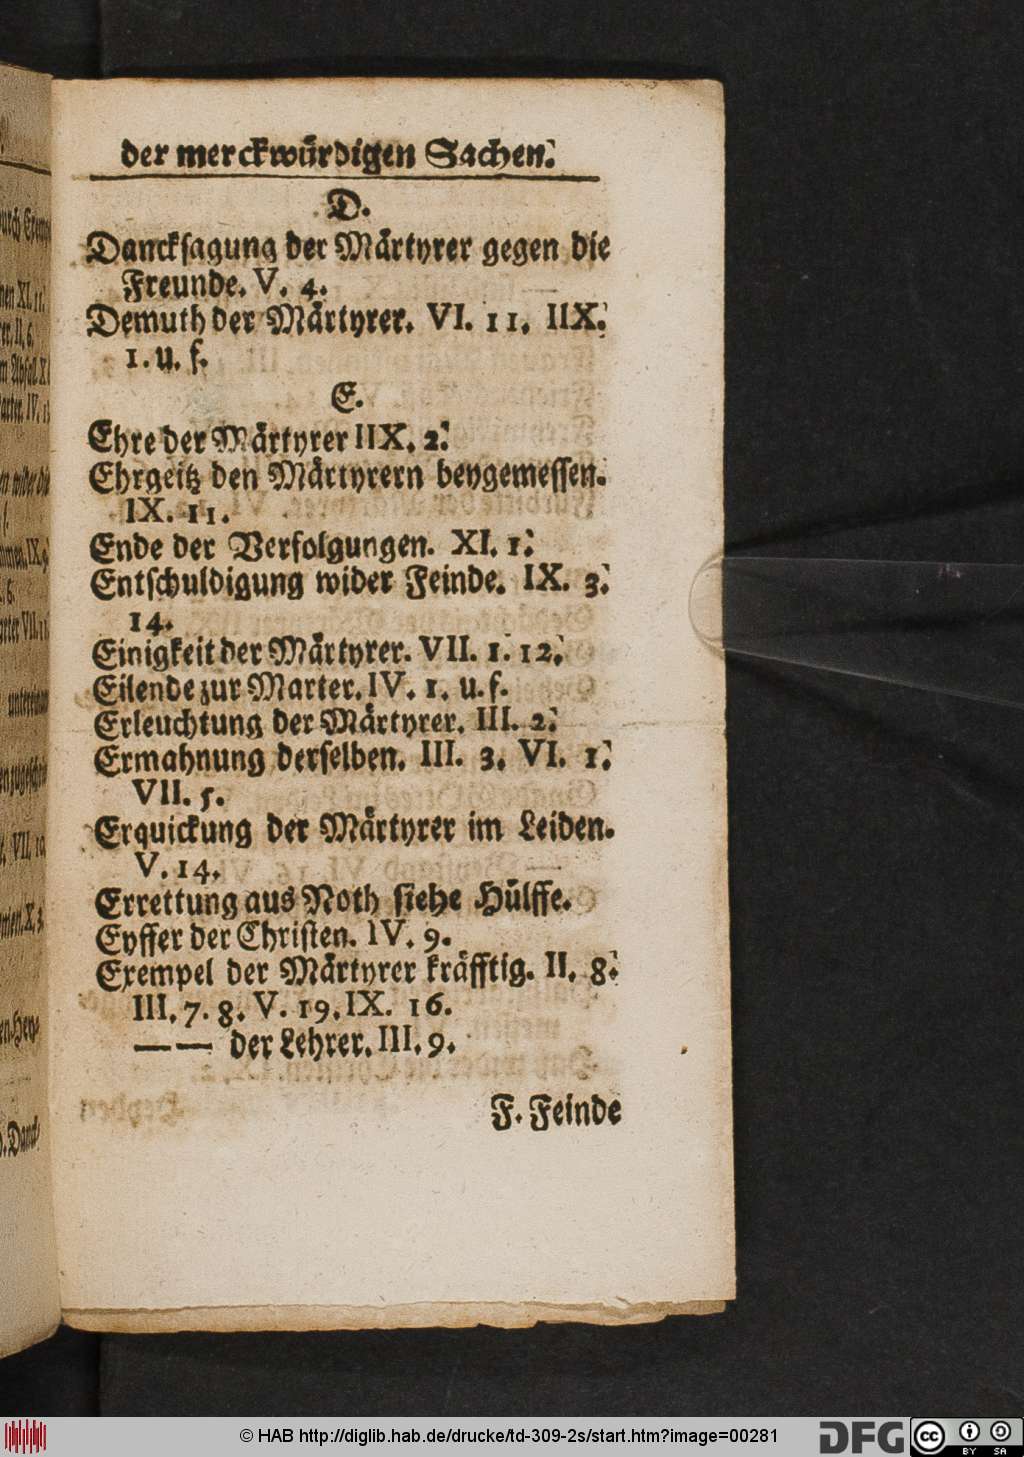 der merckwürdigen Sachen.
D.
Dancksagung der Märtyrer gegen die
Freunde. V. 4.
Demuth der Märtyrer. VI. 11. IIX.
1. u. f.
E.
Ehre der Märtyrer IIX. 2.
Ehrgeitz den Märtyrern beygemessen.
IX. 11.
Ende der Verfolgungen. XI. 1.
Entschuldigung wider Feinde. IX. 3.
14.
Einigkeit der Märtyrer. VII. 1. 12.
Eilende zur Marter. IV. 1. u. f.
Erleuchtung der Märtyrer. III. 2.
Ermahnung derselben. III. 3. VI. 1.
VII. 5.
Erquickung der Märtyrer im Leiden.
V. 14.
Errettung aus Noth siehe Hülffe.
Eyffer der Christen. IV. 9.
Exempel der Märtyrer kräfftig. II. 8.
III. 7. 8. V. 19. IX. 16.
—— der Lehrer. III. 9.
F. Feinde
© HAB http://diglib.hab.de/drucke/td-309-2s/start.htm?image=00281
DFG
cc BY SA